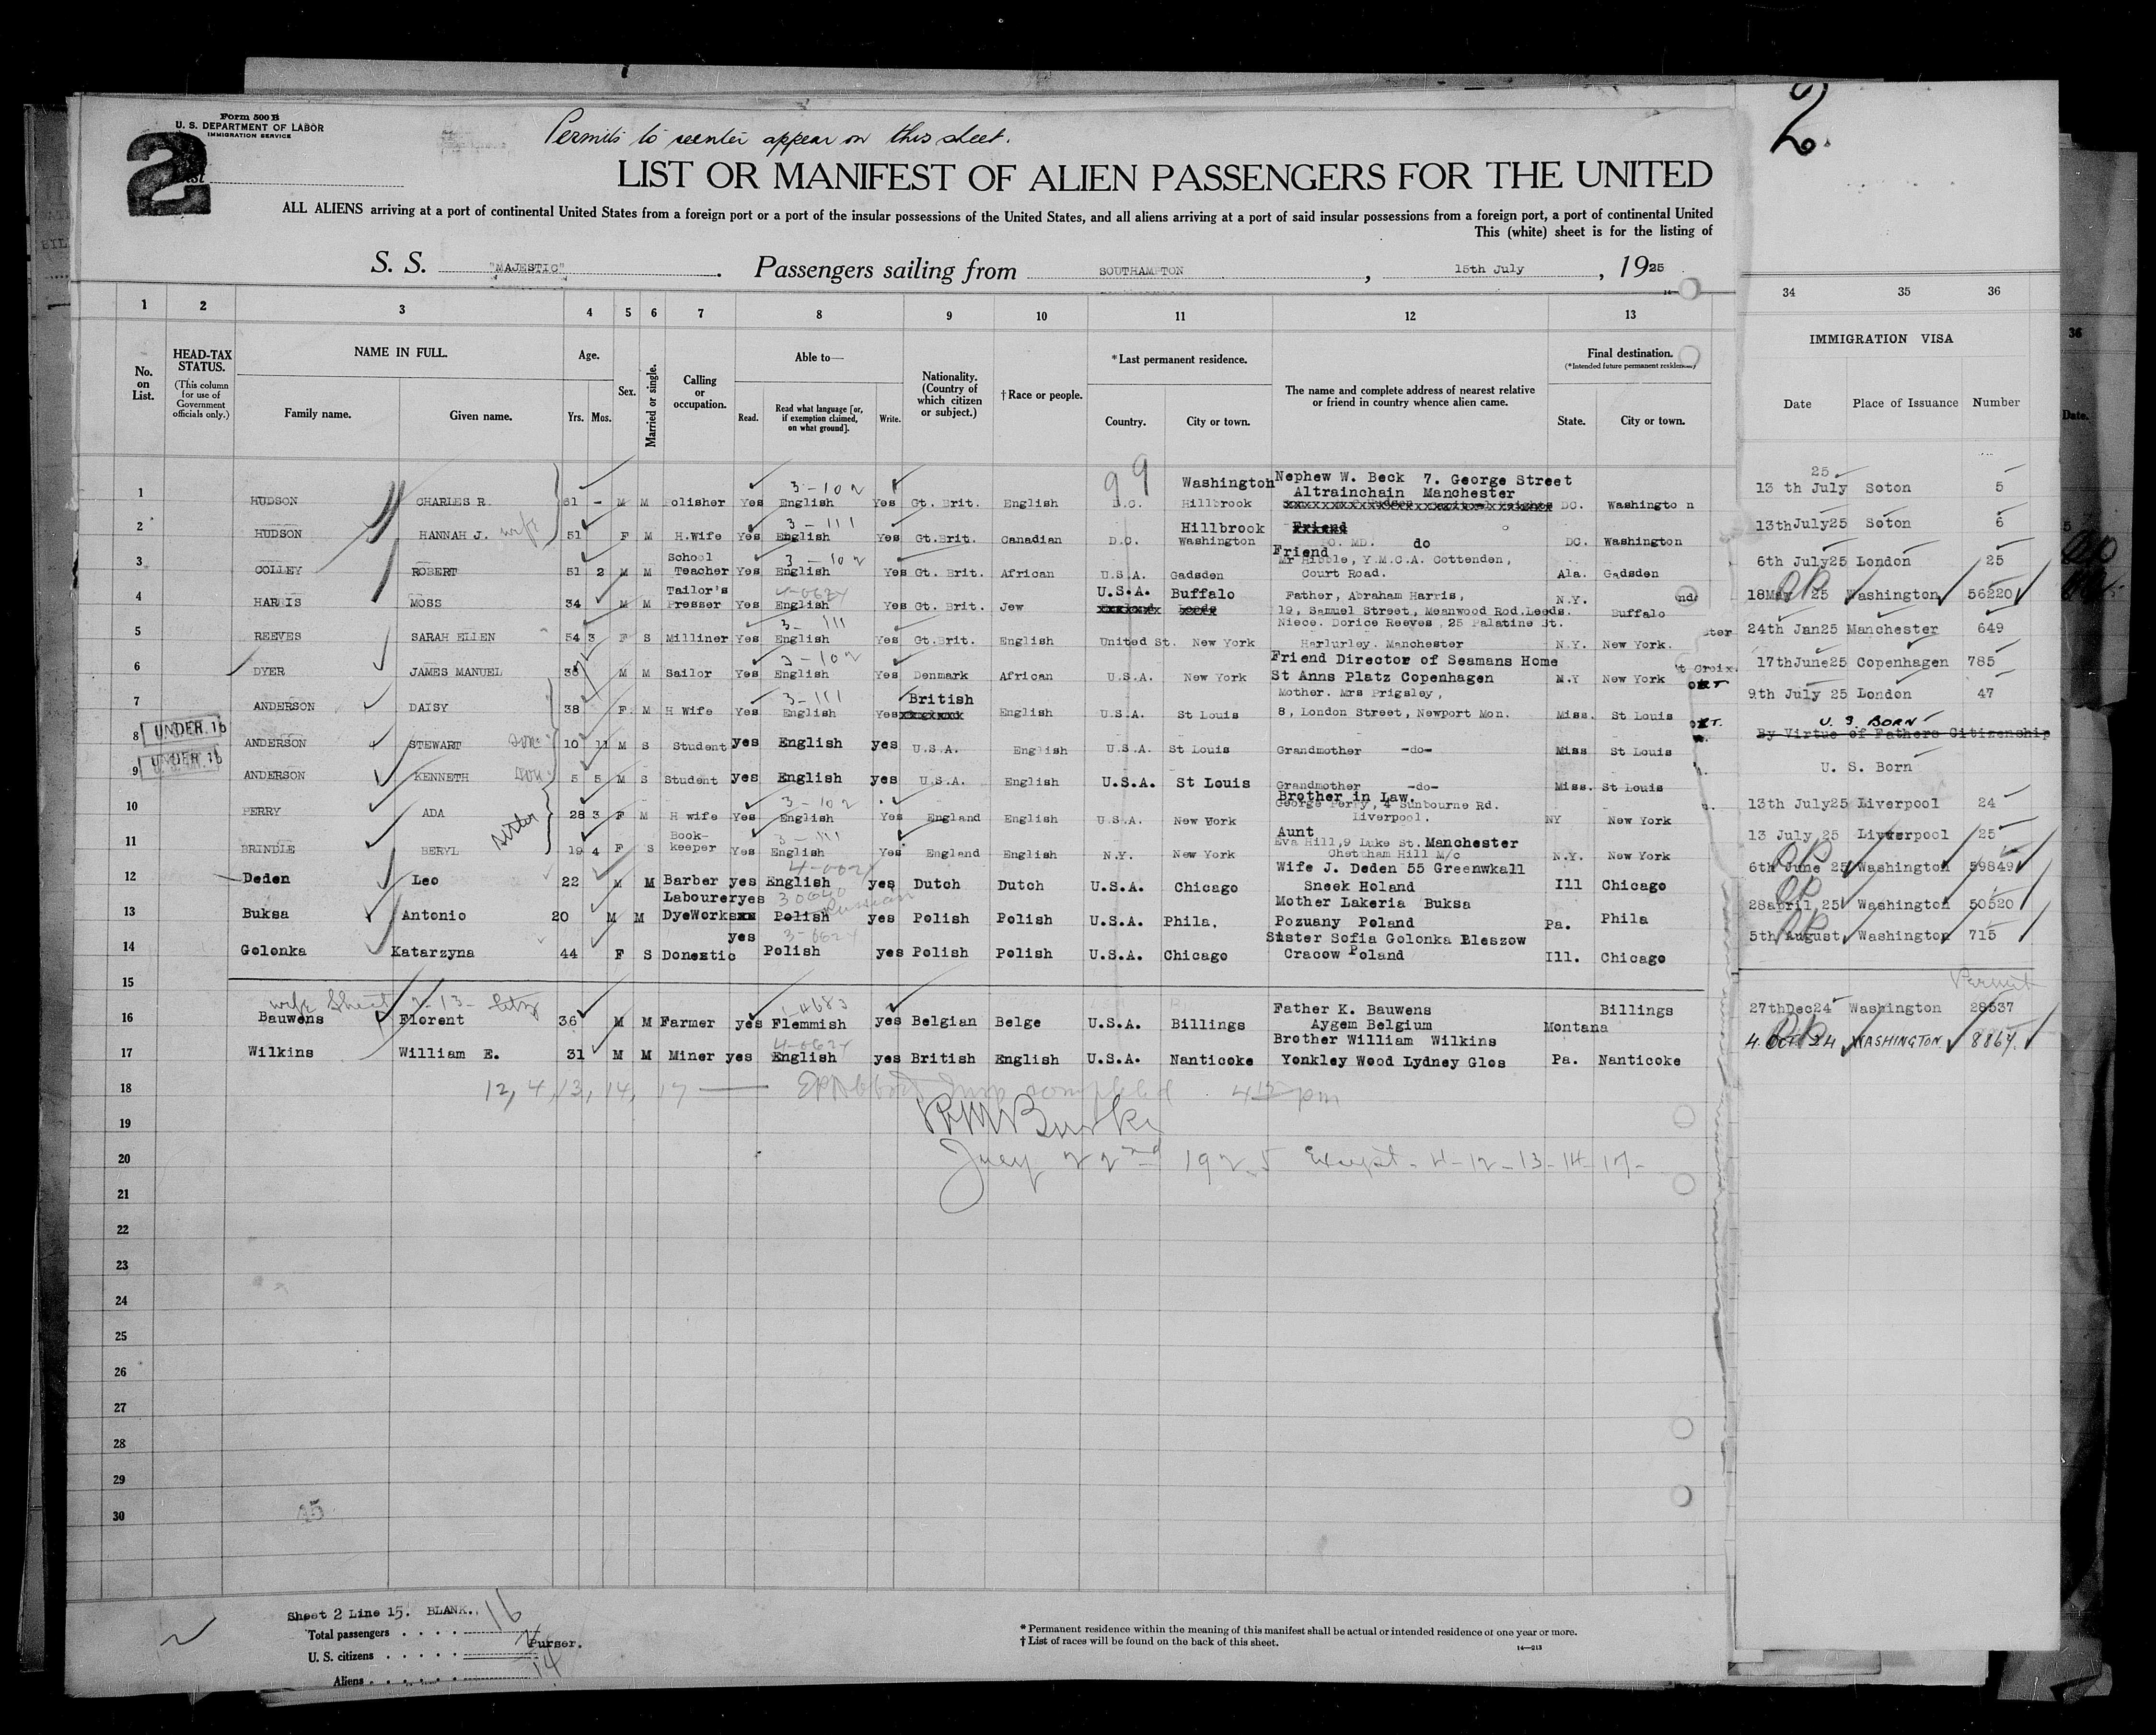 Form 500 B
U. S. DEPARTMENT OF LABOR
IMMIGRATION SERVICE
2
2.
Permits to reenter appear on this sheet.
LIST OR MANIFEST OF ALIEN PASSENGERS FOR THE UNITED
ALL ALIENS arriving at a port of continental United States from a foreign port or a port of the insular possessions of the United States, and all aliens arriving at a port of said insular possessions from a foreign port, a port of continental United
This (white) sheet is for the listing of
S. S. "MAJESTIC" . Passengers sailing from SOUTHAMPTON , 15th July , 1925
1 2 3 4 5 6 7 8 9 10 11 12 13 34 35 36
No. on List.
HEAD-TAX STATUS. (This column for use of Government officials only.)
NAME IN FULL. Family name. Given name.
Age. Yrs. Mos.
Sex.
Married or single.
Calling or occupation.
Able to— Read. Read what language [or, if exemption claimed, on what ground]. Write.
Nationality. (Country of which citizen or subject.)
†Race or people.
*Last permanent residence. Country. City or town.
The name and complete address of nearest relative or friend in country whence alien came.
Final destination. (*Intended future permanent residence.) State. City or town.
IMMIGRATION VISA Date Place of Issuance Number
99 Washington Nephew W. Beck 7. George Street 25
3-102 Altrainchain Manchester
1 HUDSON CHARLES R. 61 - M M Polisher Yes English Yes Gt. Brit. English D.C. Hillbrook DC. Washington 13 th July Soton 5
3-111 Hillbrook Friend
2 HUDSON HANNAH J. wife 51 F M H.Wife Yes English Yes Gt.Brit. Canadian D.C. Washington MD. do DC. Washington 13thJuly25 Soton 6
School 3-102 Friend
3 COLLEY ROBERT 51 2 M M Teacher Yes English Yes Gt. Brit. African U.S.A. Gadsden Mr Hibble, Y.M.C.A. Cottenden, Court Road. Ala. Gadsden 6th July25 London 25
Tailor's 4-0624 U.S.A. Buffalo Father, Abraham Harris,
4 HARRIS MOSS 34 M M Presser Yes English Yes Gt. Brit. Jew Leeds 19, Samuel Street, Meanwood Rod.Leeds. N.Y. Buffalo 18May 25 Washington 56220
3-111 Niece. Dorice Reeves, 25 Palatine St.
5 REEVES SARAH ELLEN 54 3 F S Milliner Yes English Yes Gt.Brit. English United St. New York Harlurley. Manchester N.Y. New York. 24th Jan25 Manchester 649
3-102 Friend Director of Seamans Home
6 DYER JAMES MANUEL 36 M M Sailor Yes English Yes Denmark African U.S.A. New York St Anns Platz Copenhagen N.Y New York 17thJune25 Copenhagen 785
3-111 British Mother. Mrs Prigsley,
7 ANDERSON DAISY 38 F M H Wife Yes English Yes English U.S.A. St Louis 8, London Street, Newport Mon. Miss. St Louis 9th July 25 London 47
UNDER 16 U. S. BORN
8 ANDERSON STEWART son 10 11 M S Student yes English yes U.S.A. English U.S.A. St Louis Grandmother -do- Miss St Louis By Virtue of Fathers Citizenship
UNDER 16
9 ANDERSON KENNETH son 5 5 M S Student yes English yes U.S.A. English U.S.A. St Louis Grandmother -do- Miss. St Louis U. S. Born
3-102 Brother in Law.
10 PERRY ADA 28 3 F M H wife Yes English Yes England English U.S.A. New York George Perry, 4 Sunbourne Rd. Liverpool. NY New York 13th July25 Liverpool 24
sister Book- 3-111 Aunt
11 BRINDLE BERYL 19 4 F S keeper Yes English Yes England English N.Y. New York Eva Hill,9 Luke St. Manchester Chettham Hill M/c N.Y. New York 13 July 25 Liverpool 25
4-0624 Wife J. Deden 55 Greenwkall
12 Deden Leo 22 M M Barber yes English yes Dutch Dutch U.S.A. Chicago Sneek Holand Ill Chicago 6th June 25 Washington 59849
Labourer yes Russian Mother Lakeria Buksa
13 Buksa Antonio 20 M M DyeWorks Polish yes Polish Polish U.S.A. Phila. Pozuany Poland Pa. Phila 28april 25 Washington 50520
yes 3-0624 Sister Sofia Golonka Bleszow
14 Golonka Katarzyna 44 F S Domestic Polish yes Polish Polish U.S.A. Chicago Cracow Poland Ill. Chicago 5th August Washington 715
15 Permit
wife Sheet 7-13- Father K. Bauwens Billings
16 Bauwens Florent 36 M M Farmer yes Flemmish yes Belgian Belge U.S.A. Billings Aygem Belgium Montana 27thDec24 Washington 28537
4-0624 Brother William Wilkins
17 Wilkins William E. 31 M M Miner yes English yes British English U.S.A. Nanticoke Yonkley Wood Lydney Glos Pa. Nanticoke 4. Oct 24 WASHINGTON. 8864.
18 12, 4, 13, 14, 17 pm
19 RMBurke
20 July 22nd 1925 Except - 4-12-13-14-17-
21
22
23
24
25
26
27
28
29
30
Sheet 2 Line 15. BLANK.
Total passengers . . . . 16
Purser.
U. S. citizens . . . . . 2
Aliens . . . . . . 14
* Permanent residence within the meaning of this manifest shall be actual or intended residence of one year or more.
† List of races will be found on the back of this sheet.
14—213